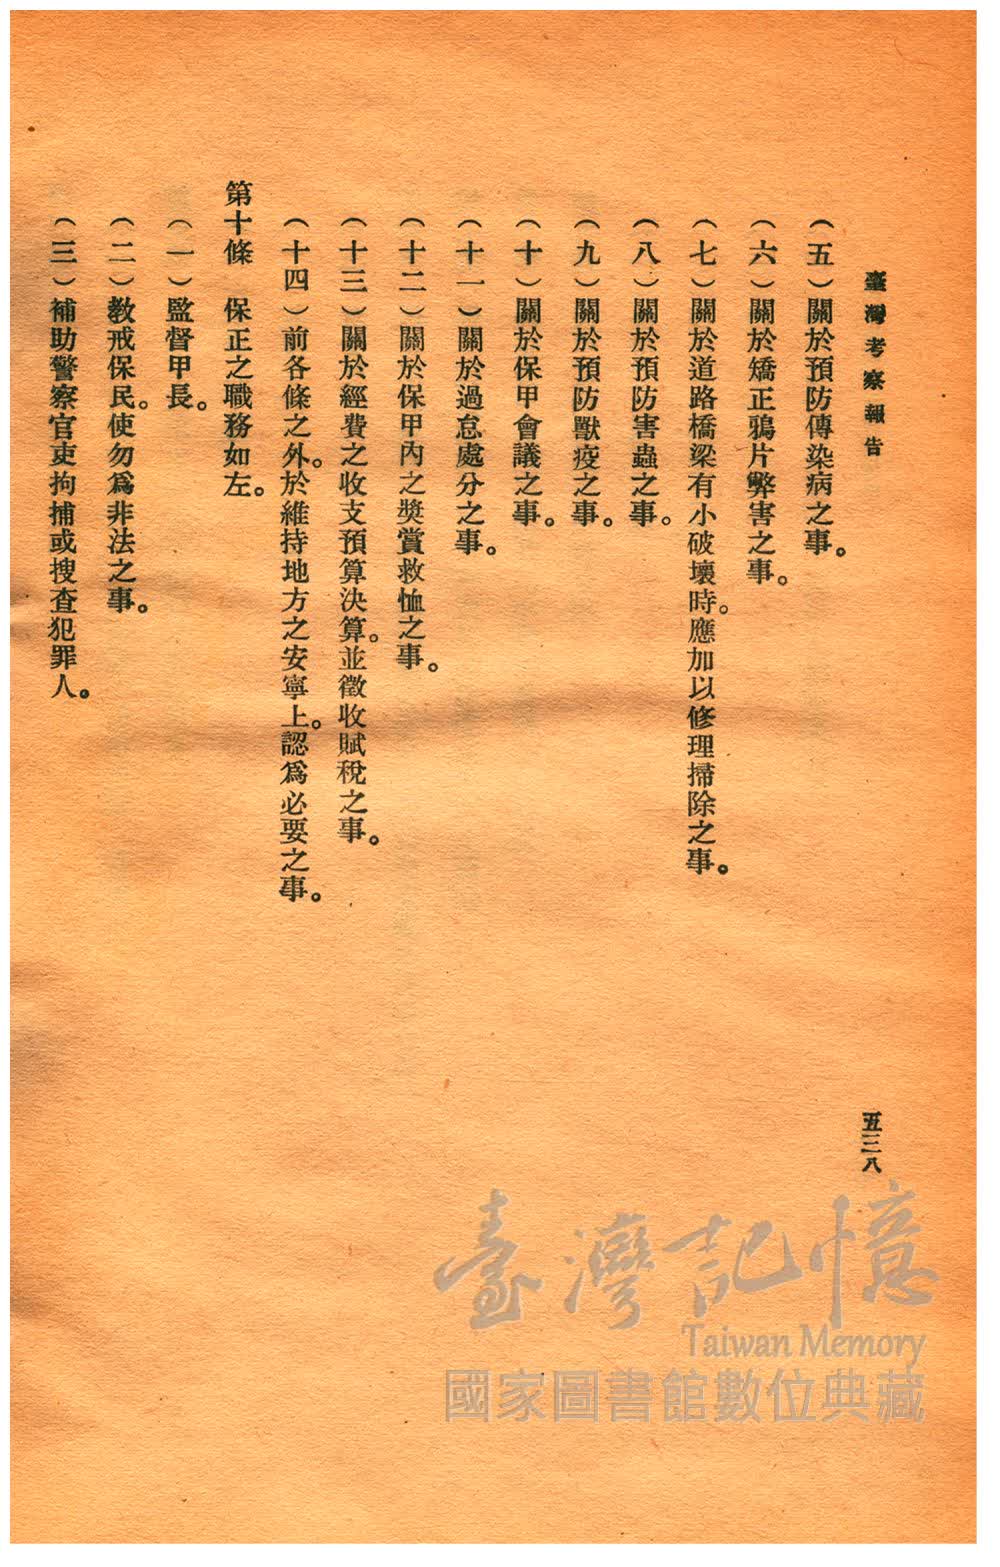 臺灣考察報告
五三八
（五）關於預防傳染病之事。
（六）關於矯正鴉片弊害之事。
（七）關於道路橋梁有小破壞時。應加以修理掃除之事。
（八）關於預防害蟲之事。
（九）關於預防獸疫之事。
（十）關於保甲會議之事。
（十一）關於過怠處分之事。
（十二）關於保甲內之獎賞救恤之事。
（十三）關於經費之收支預算決算。並徵收賦稅之事。
（十四）前各條之外。於維持地方之安寧上。認爲必要之事。
第十條　保正之職務如左。
（一）監督甲長。
（二）教戒保民。使勿爲非法之事。
（三）補助警察官吏拘捕或搜查犯罪人。
臺灣記憶
Taiwan Memory
國家圖書館數位典藏